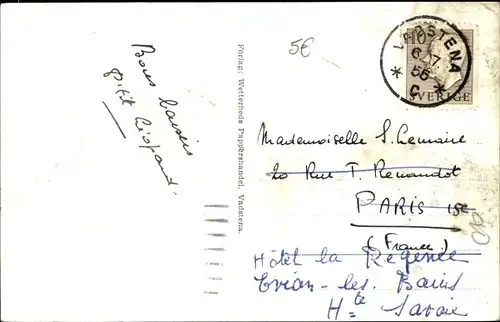 Bons baisers
p'tit Léopard.
Förlag: Wetterheds Pappershandel, Vadstena.
5€
VADSTENA
6.7.
56
C
SVERIGE
Mademoiselle S. Lemaire
20 Rue T. Renaudot
PARIS 15e
(France)
Hôtel la Régence
Evian-les-Bains
Hte Savoie